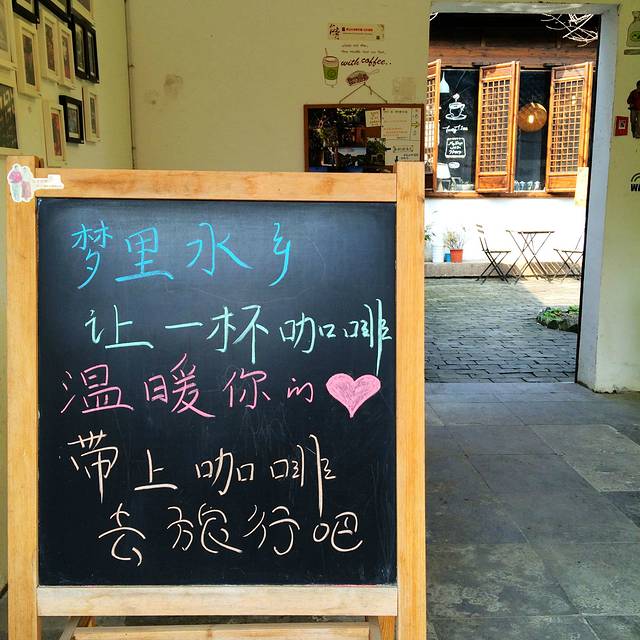 with coffee..
梦里水乡
让一杯咖啡
温暖你的
带上咖啡
去旅行吧